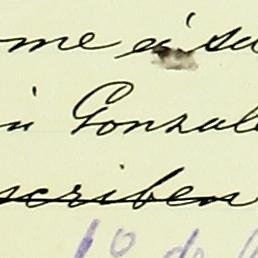 ome á su
n Gonzale
scriben
1º de